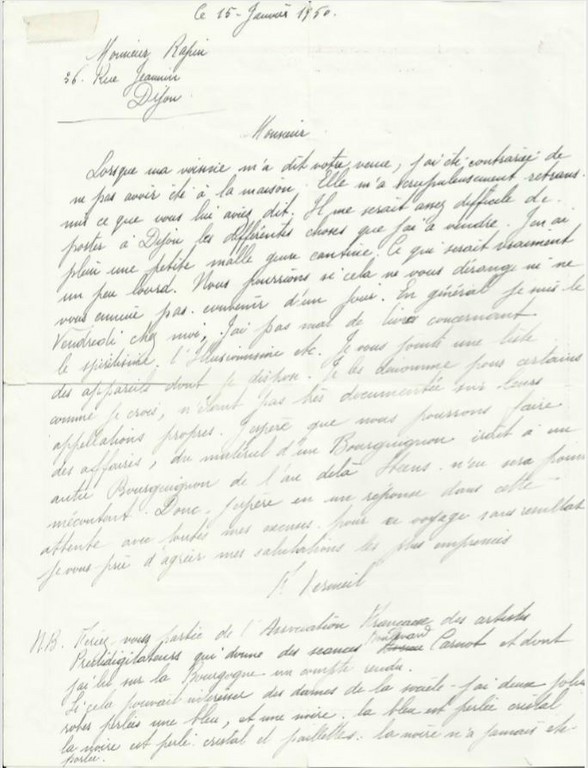 Ce 15 - Janvier 1950.
Monsieur Rapin
26. Rue Jeannin
Dijon
Monsieur
Lorsque ma voisine m'a dit votre venue, j'ai été contrariée de
ne pas avoir été à la maison. Elle m'a scrupuleusement retrans-
mis ce que vous lui aviez dit. Il me serait assez difficile de
porter à Dijon les différentes choses que j'ai à vendre. J'en ai
plein une petite malle genre cantine. Ce qui serait vraiment
un peu lourd. Nous pourrions si cela ne vous dérange ni ne
vous ennuie pas convenir d'un jour. En général je suis le
Vendredi chez moi, j'ai pas mal de livres concernant
le spiritisme, l'Illusionnisme etc. Je vous joints une liste
des appareils dont je dispose. Je les dénomme pour certains
comme je crois, n'étant pas très documentée sur leurs
appellations propres. J'espère que nous pourrons faire
des affaires, du matériel d'un Bourguignon irait à un
autre Bourguignon de l'au delà n'en sera point
mécontent. Donc j'espère en une réponse dans cette
attente avec toutes mes excuses pour ce voyage sans resultat
je vous prie d'agréer mes salutations les plus empressés
Vermeil
N.B. Feriez vous partie de l'Association Française des artistes
Prestidigitateurs qui donne des séances Boulevard Carnot et dont
j'ai lu sur la Bourgogne un compte rendu.
Si cela pouvait interesser des dames de la société - j'ai deux jolies
robes perlées une bleu, et une noire, la bleu est perlée cristal
la noire est perlé cristal et paillettes. la noire n'a jamais été
portée.